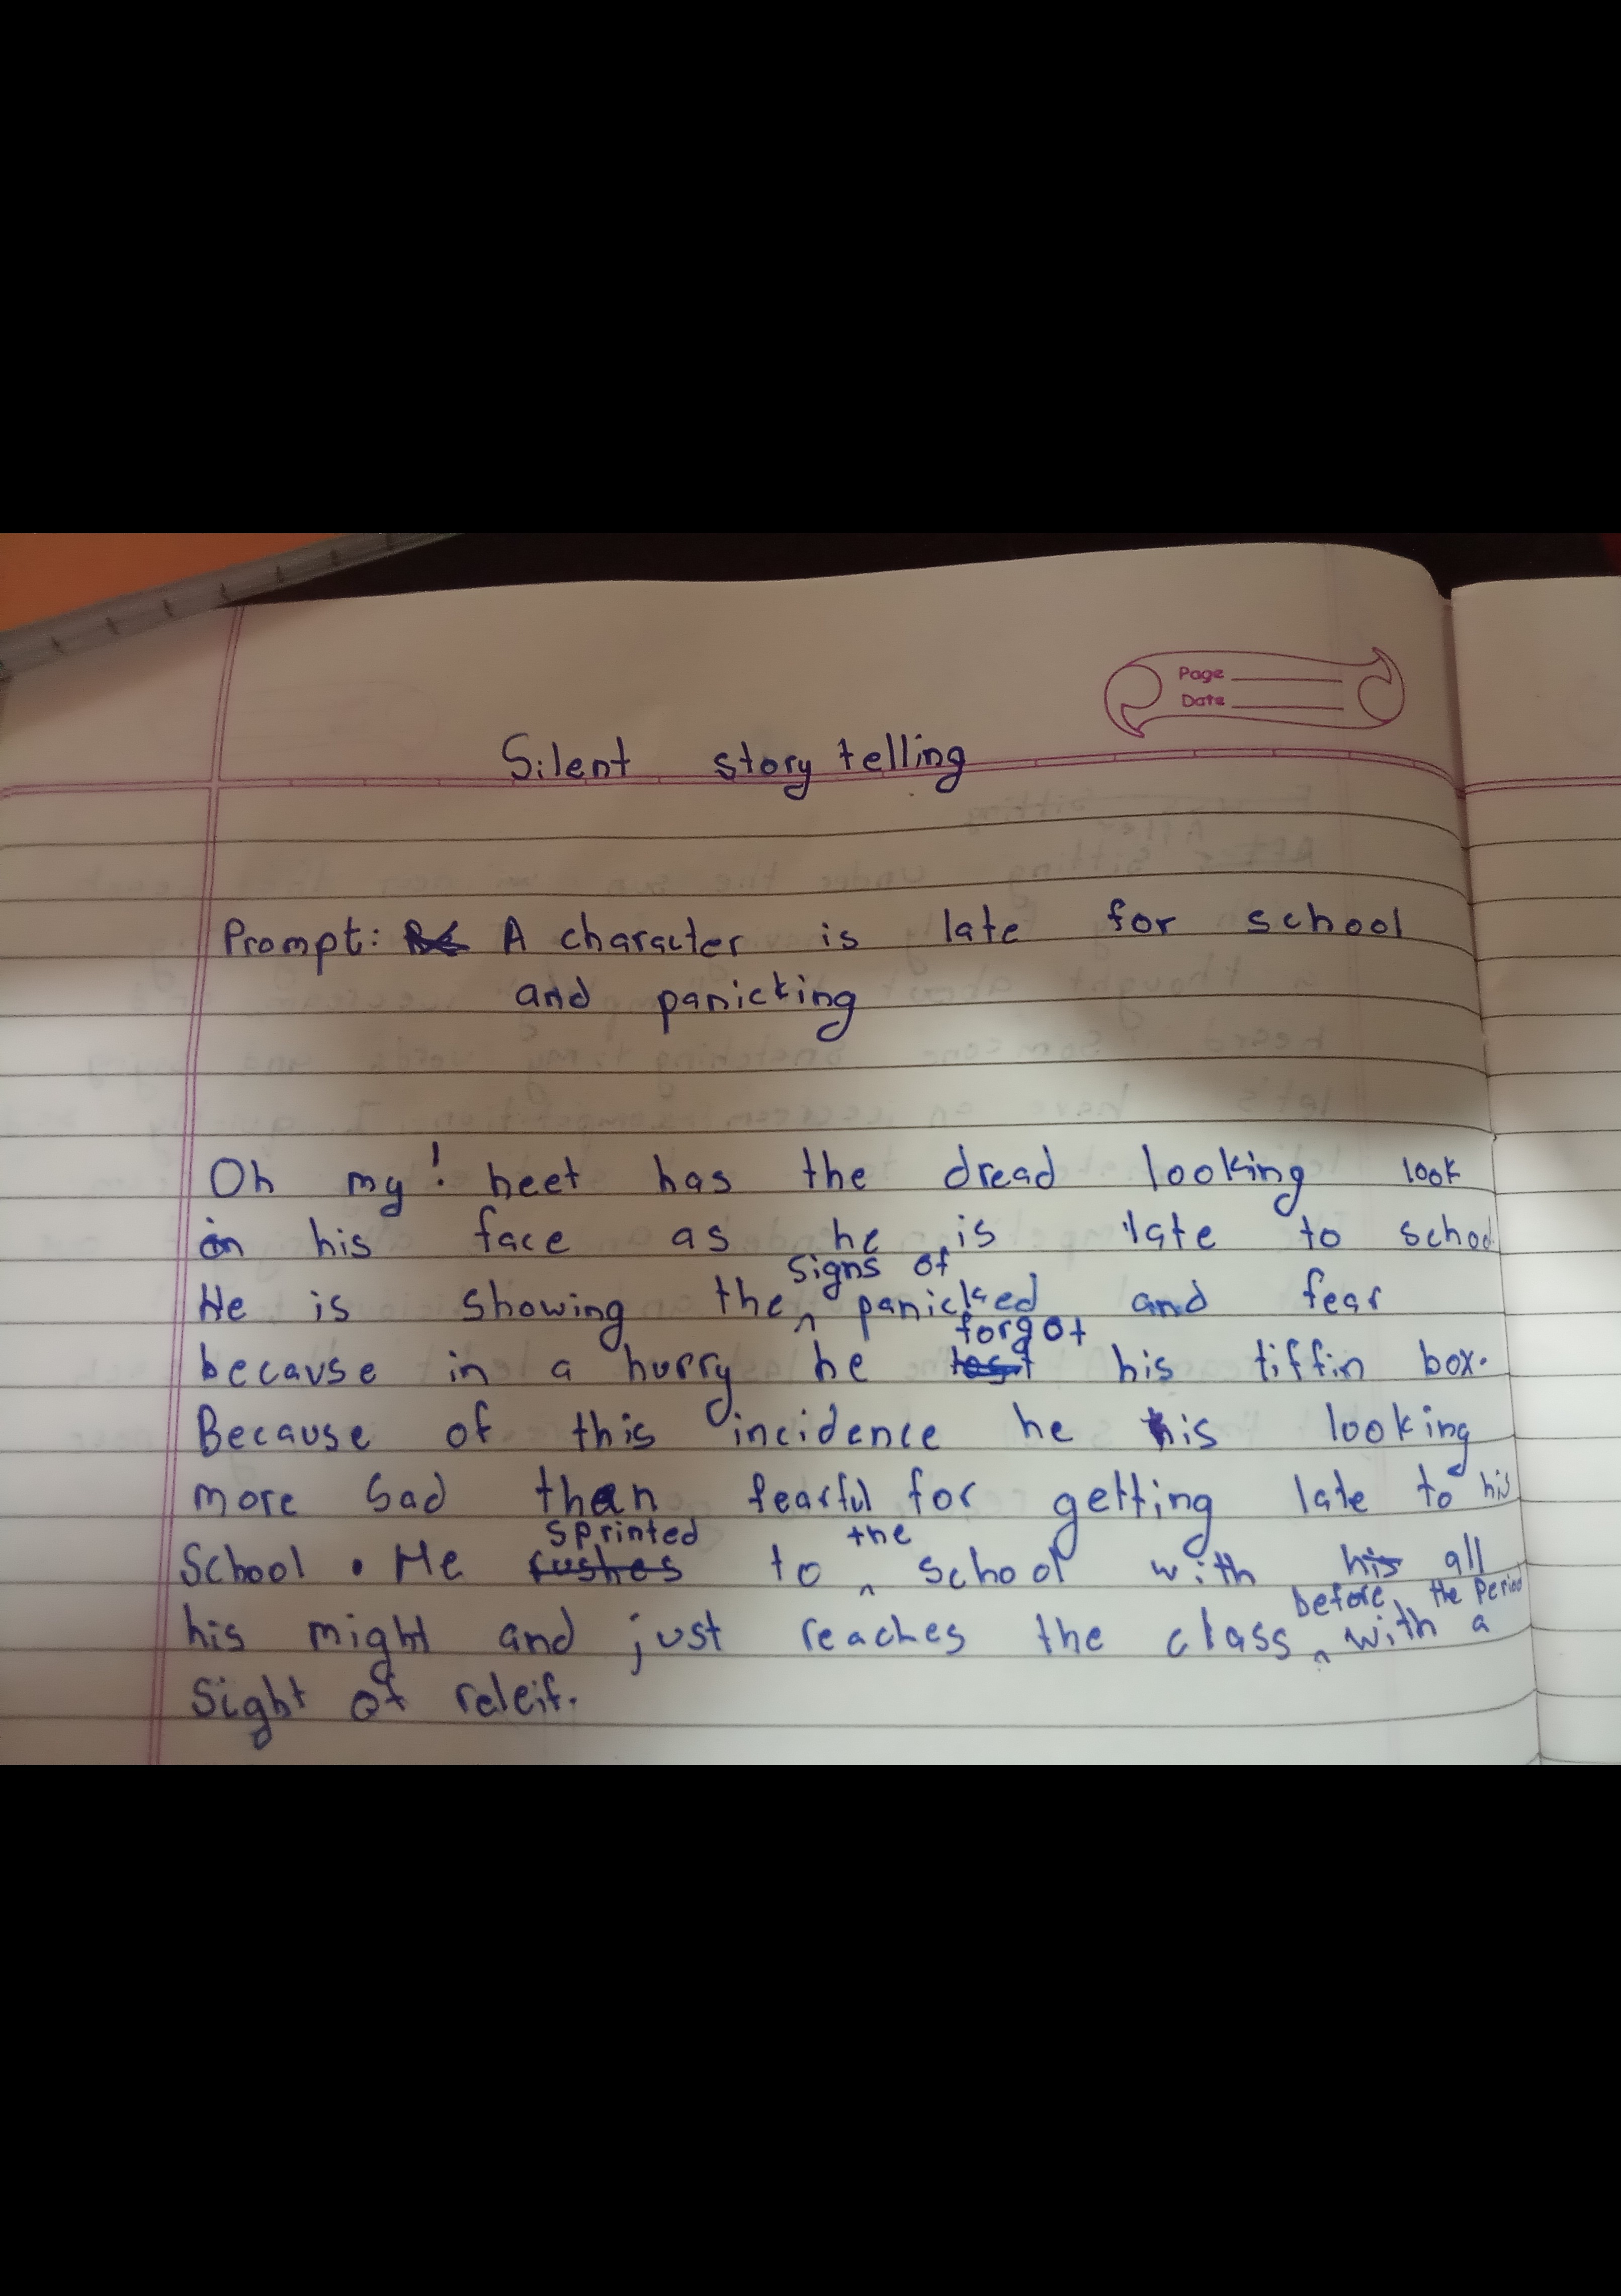 Page
Date
Silent story telling
Prompt: A character is late for school
and panicking
Oh my! heet has the dread looking look
on his face as he is late to school
He is showing the signs of panicked and fear
because in a hurry he forgot his tiffin box.
Because of this incidence he is looking
more sad than fearful for getting late to his
School. He sprinted to the school with all
his might and just reaches the class before the Period with a
Sight of releif.